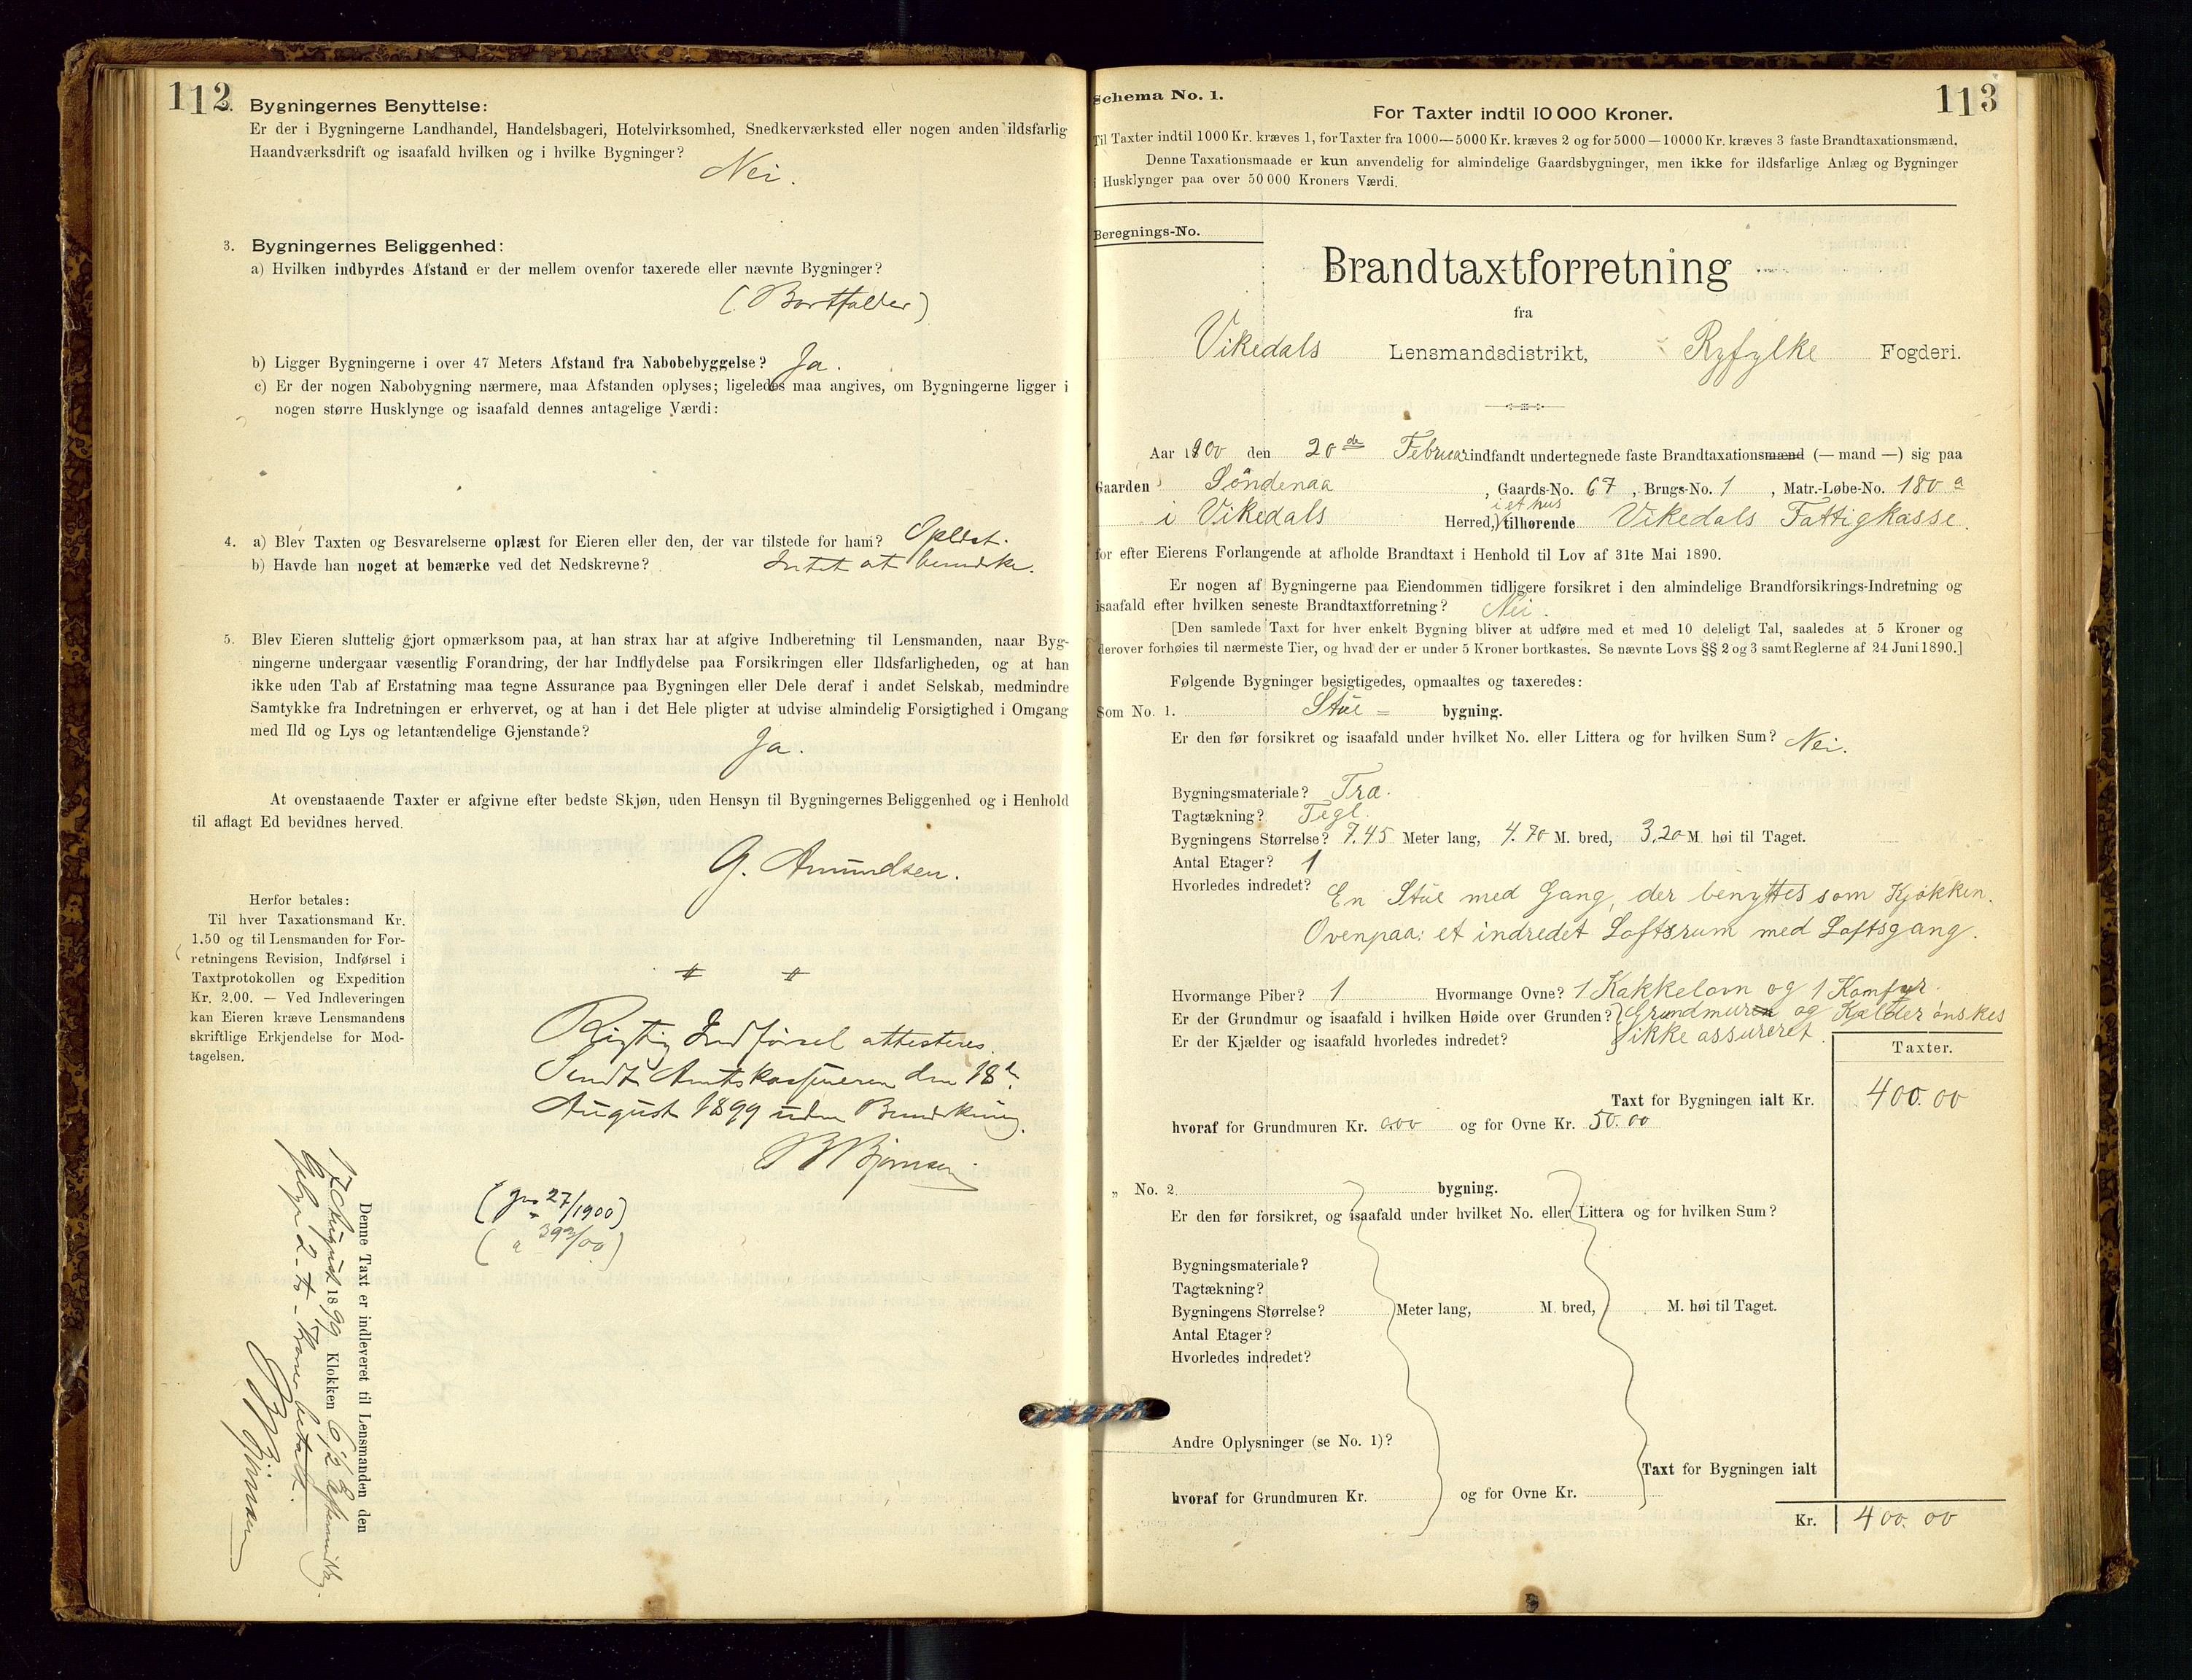 112
2. Bygningernes Benyttelse:
Er der i Bygningerne Landhandel, Handelsbageri, Hotelvirksomhed, Snedkerværksted eller nogen anden ildsfarlig
Haandværksdrift og isaafald hvilken og i hvilke Bygninger?
Nei.
3. Bygningernes Beliggenhed:
a) Hvilken indbyrdes Afstand er der mellem ovenfor taxerede eller nævnte Bygninger?
(Bortfalder)
b) Ligger Bygningerne i over 47 Meters Afstand fra Nabobebyggelse? Ja.
c) Er der nogen Nabobygning nærmere, maa Afstanden oplyses; ligeledes maa angives, om Bygningerne ligger i
nogen større Husklynge og isaafald dennes antagelige Værdi:
4. a) Blev Taxten og Besvarelserne oplæst for Eieren eller den, der var tilstede for ham? Oplæst.
b) Havde han noget at bemærke ved det Nedskrevne? Intet at bemærke.
5. Blev Eieren sluttelig gjort opmærksom paa, at han strax har at afgive Indberetning til Lensmanden, naar Byg-
ningerne undergaar væsentlig Forandring, der har Indflydelse paa Forsikringen eller Ildsfarligheden, og at han
ikke uden Tab af Erstatning maa tegne Assurance paa Bygningen eller Dele deraf i andet Selskab, medmindre
Samtykke fra Indretningen er erhvervet, og at han i det Hele pligter at udvise almindelig Forsigtighed i Omgang
med Ild og Lys og letantændelige Gjenstande?
Ja.
At ovenstaaende Taxter er afgivne efter bedste Skjøn, uden Hensyn til Bygningernes Beliggenhed og i Henhold
til aflagt Ed bevidnes herved.
G. Amundsen.
Herfor betales:
Til hver Taxationsmand Kr.
1.50 og til Lensmanden for For-
retningens Revision, Indførsel i
Taxtprotokollen og Expedition
Kr. 2.00. — Ved Indleveringen
kan Eieren kræve Lensmandens
skriftlige Erkjendelse for Mod-
tagelsen.
Rigtig Indførsel attesteres.
Sendt Amtskassereren den 18de
August 1899 uden Bemærkning.
B Bjørnsen
(Jno 27/1900)
( " 393/00)
Denne Taxt er indleveret til Lensmanden den
17 August 1899 Klokken 6 1/2 Eftermiddag.
Gebyr 2 - to - Kroner betalt.
B Bjørnsen
113
Schema No. 1.
For Taxter indtil 10 000 Kroner.
Til Taxter indtil 1000 Kr. kræves 1, for Taxter fra 1000—5000 Kr. kræves 2 og for 5000—10000 Kr. kræves 3 faste Brandtaxationsmænd.
Denne Taxationsmaade er kun anvendelig for almindelige Gaardsbygninger, men ikke for ildsfarlige Anlæg og Bygninger
i Husklynger paa over 50 000 Kroners Værdi.
Beregnings-No.
Brandtaxtforretning
fra
Vikedals Lensmandsdistrikt, Ryfylke Fogderi.
Aar 1900 den 20de Februar indfandt undertegnede faste Brandtaxationsmænd (— mand —) sig paa
Gaarden Söndenaa, Gaards-No. 67, Brugs-No. 1, Matr.-Løbe-No. 180 a
i et hus
i Vikedals Herred, tilhørende Vikedals Fattigkasse.
for efter Eierens Forlangende at afholde Brandtaxt i Henhold til Lov af 31te Mai 1890.
Er nogen af Bygningerne paa Eiendommen tidligere forsikret i den almindelige Brandforsikrings-Indretning og
isaafald efter hvilken seneste Brandtaxtforretning? Nei.
[Den samlede Taxt for hver enkelt Bygning bliver at udføre med et med 10 deleligt Tal, saaledes at 5 Kroner og
derover forhøies til nærmeste Tier, og hvad der er under 5 Kroner bortkastes. Se nævnte Lovs §§ 2 og 3 samt Reglerne af 24 Juni 1890.]
Følgende Bygninger besigtigedes, opmaaltes og taxeredes:
Som No. 1. Stue = bygning.
Er den før forsikret og isaafald under hvilket No. eller Littera og for hvilken Sum? Nei.
Bygningsmateriale? Træ.
Tagtækning? Tegl.
Bygningens Størrelse? 7.45 Meter lang, 4.70 M. bred, 3,20 M høi til Taget.
Antal Etager? 1
Hvorledes indredet? En Stue med Gang, der benyttes som Kjøkken.
Ovenpaa: et indredet Loftsrum med Loftsgang.
Hvormange Piber? 1 Hvormange Ovne? 1 Kakkelovn og 1 Komfyr.
Er der Grundmur og isaafald i hvilken Høide over Grunden? Grundmuren og Kjælder ønskes
Er der Kjælder og isaafald hvorledes indredet? ikke assureret.
Taxter.
Taxt for Bygningen ialt Kr. 400.00
hvoraf for Grundmuren Kr. 0.00 og for Ovne Kr. 50.00
„ No. 2 bygning.
Er den før forsikret, og isaafald under hvilket No. eller Littera og for hvilken Sum?
Bygningsmateriale?
Tagtækning?
Bygningens Størrelse? Meter lang, M. bred, M. høi til Taget.
Antal Etager?
Hvorledes indredet?
Andre Oplysninger (se No. 1)?
Taxt for Bygningen ialt
hvoraf for Grundmuren Kr. og for Ovne Kr.
Kr. 400.00